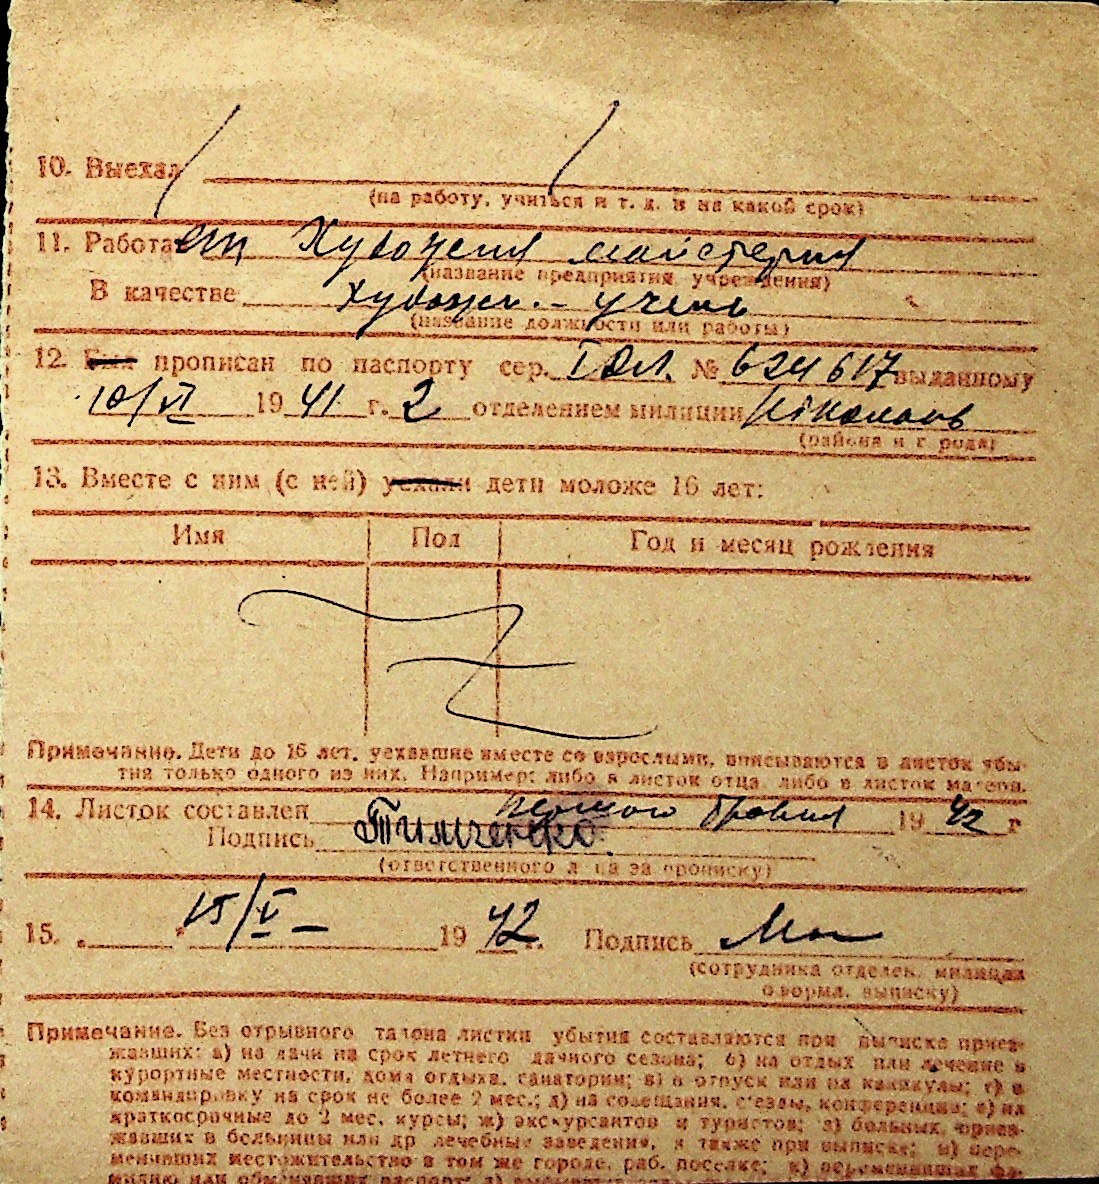 10. Выехал
(на работу, учиться и т. д. и на какой срок)
11. Работает Художня майстерня
(название предприятия, учреждения)
В качестве Художн. - учень
(название должности или работы)
12. Был прописан по паспорту сер. № 624617 выданному
10/VI 1941 г. 2 отделением милиции
(района и города)
13. Вместе с ним (с ней) уехали дети моложе 16 лет:
Имя Пол Год и месяц рождения
Примечание. Дети до 16 лет, уехавшие вместе со взрослыми, вписываются в листок убы-
тия только одного из них. Например: либо в листок отца, либо в листок матери.
14. Листок составлен травня 1942 г
Подпись Тимченко
(ответственного лица за прописку)
15. 15/V - 1942 г. Подпись
(сотрудника отделен. милиции
оформл. выписку)
Примечание. Без отрывного талона листки убытия составляются при выписке приез-
жавших: а) на дачи на срок летнего дачного сезона; б) на отдых или лечение в
курортные местности, дома отдыха, санатории; в) в отпуск или на каникулы; г) в
командировку на срок не более 2 мес.; д) на совещания, съезды, конференции; е) на
краткосрочные до 2 мес. курсы; ж) экскурсантов и туристов; з) больных, приез-
жавших в больницы или др лечебные заведения, а также при выписке; и) пере-
менивших местожительство в том же городе, раб. поселке; к) переменивших фа-
милию или обменявших паспорт;